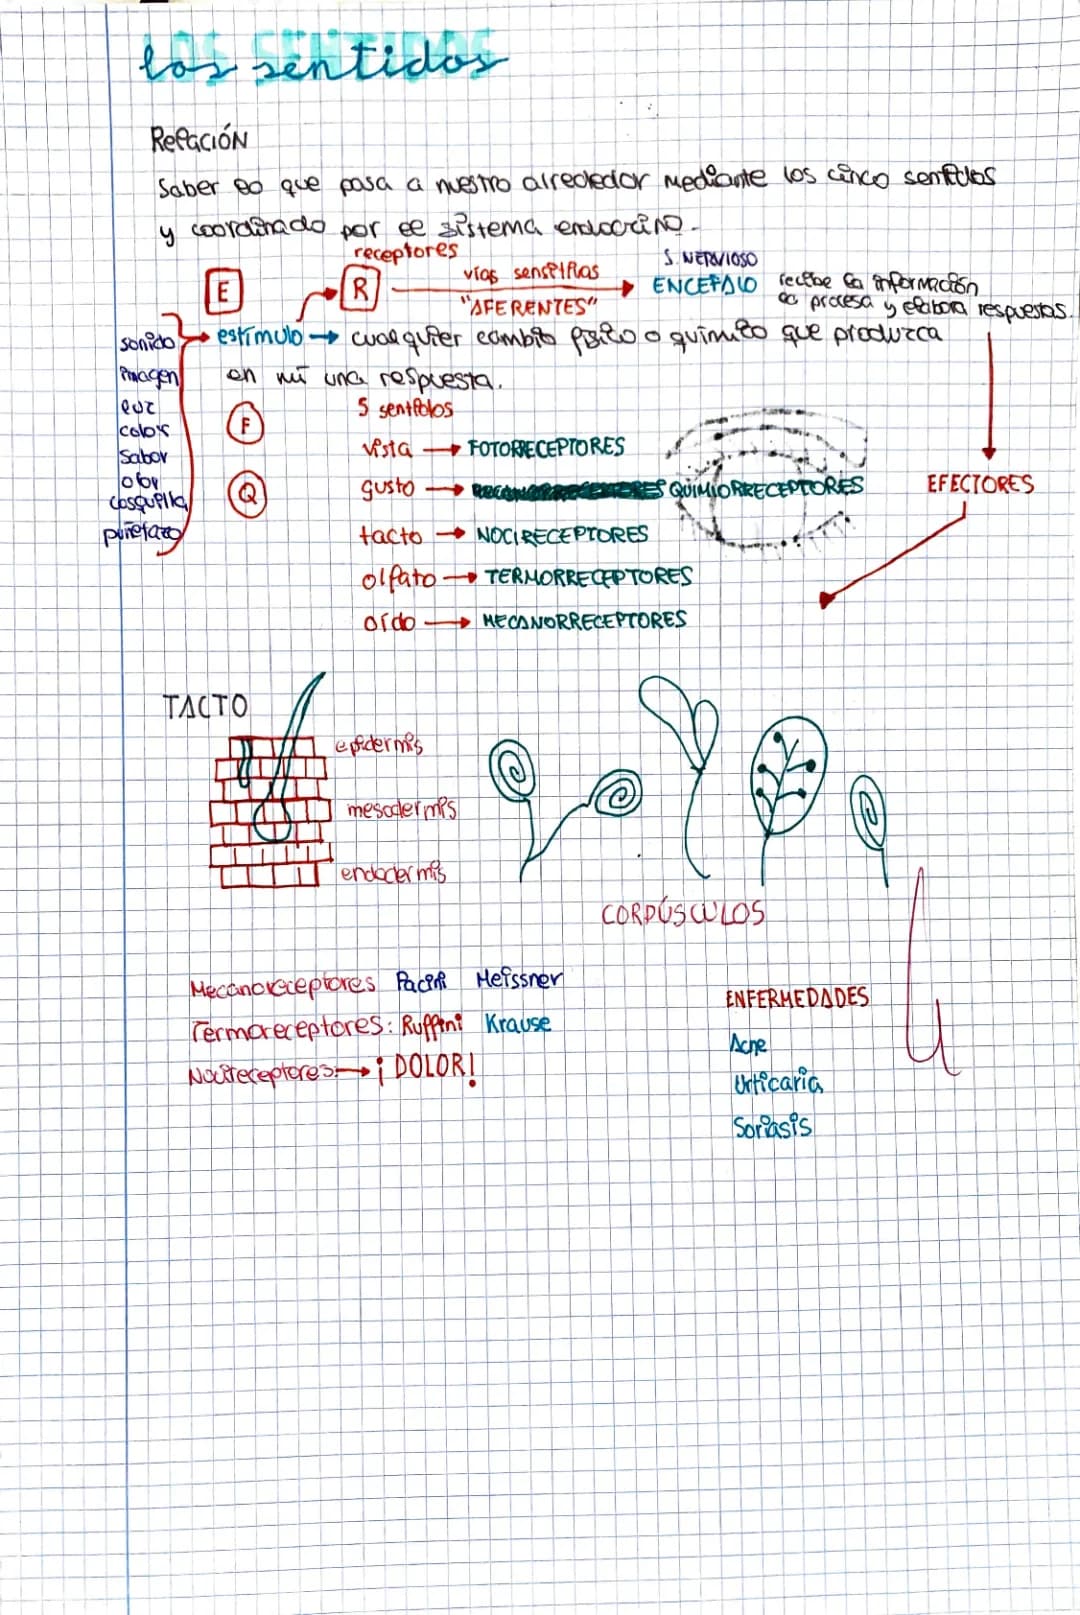 LOS SENTIDOS
los sentidos
Relación
Saber lo que pasa a nuestro alrededor mediante los cinco sentidos
y coordinado por el sistema endocrino.
receptores
S. NERVIOSO
E
R
vías sensitivas
"AFERENTES"
ENCEFALO
recibe la información
la procesa y elabora respuestas.
sonido
estímulo → cualquier cambio físico o químico que produzca
imagen
en mí una respuesta.
luz
color
sabor
olor
cosquilla
puñetazo
F
Q
5 sentidos
vista → FOTORRECEPTORES
gusto → QUIMIORRECEPTORES
tacto → NOCIRECEPTORES
olfato → TERMORRECEPTORES
oído → MECANORRECEPTORES
EFECTORES
TACTO
epidermis
mesodermis
endodermis
CORPÚSCULOS
Mecanoreceptores Pacini Meissner
Termoreceptores: Ruffini Krause
Nocireceptores: → ¡DOLOR!
ENFERMEDADES
Acne
Urticaria
Soriasis